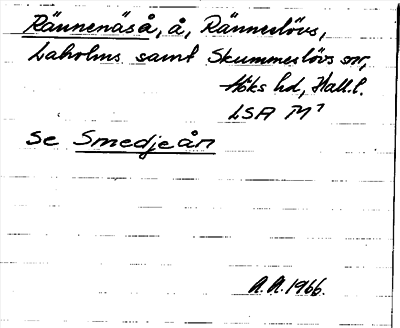 Rännenäså, å, Ränneslövs,
Laholms samt Skummeslövs snr,
Höks hd, Hall.l.
LSA M⁷
se Smedjeån
A.A. 1966.